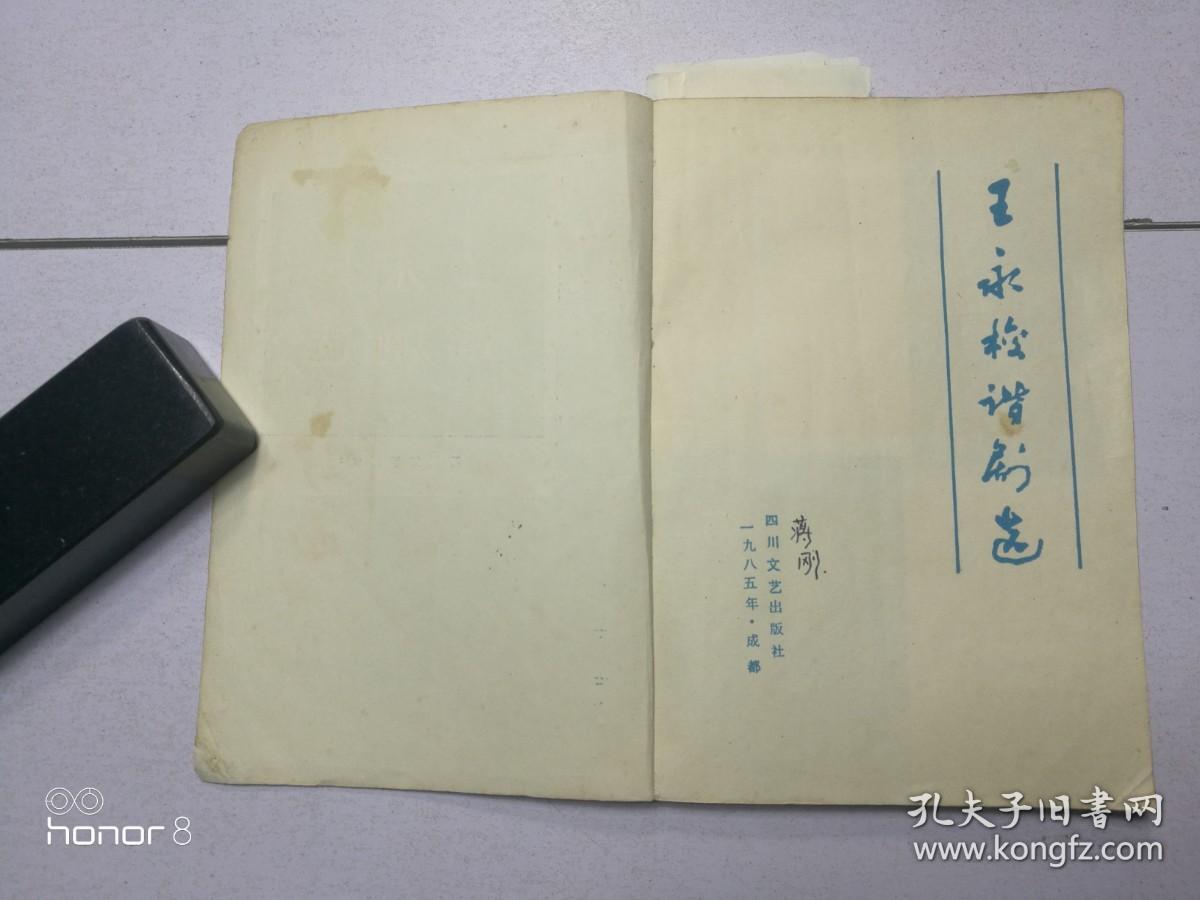 王永梭谐剧选
蒋刚
四川文艺出版社
一九八五年·成都
honor 8
孔夫子旧书网
www.kongfz.com